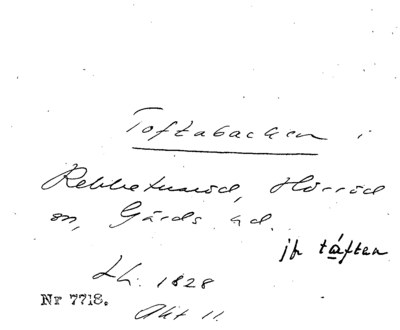 Toftabacken i
Rebbetuaröd, Hörröd
sn, Gärds hd.
jfr tåften
Lh. 1828
Nr 7718.
Akt 11.